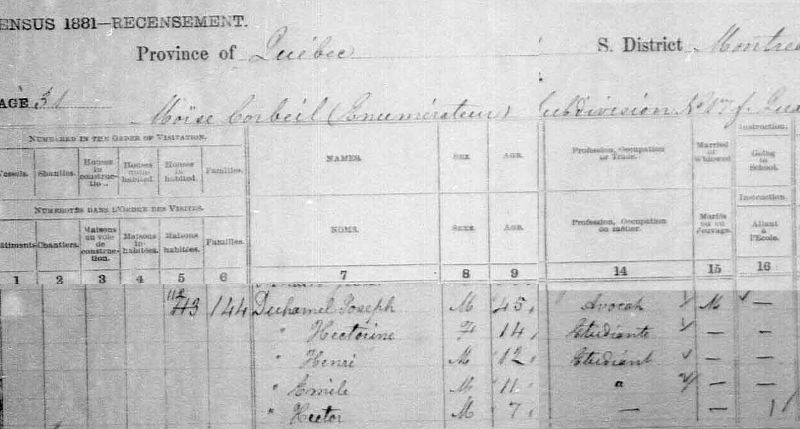 ENSUS 1881—RECENSEMENT.
Province of Québec S. District Montrea
AGE 31 Moïse Corbeil (Enumérateur) Subdivision No 1
NUMBERED IN THE ORDER OF VISITATION. NAMES. SEX AGE. Profession, Occupation or Trade. Married or Widowed Instruction.
Vessels. Shanties. Houses in constructio.. Houses unin-habited. Houses in habited. Families. Going to School.
NUMÉROTÉS DANS L'ORDRE DES VISITES. NOMS. SEXE AGE. Profession, Occupation ou métier. Mariés ou en veuvage. Instruction.
Bâtiments Chantiers. Maisons en voie de construc-tion. Maisons in-habitées. Maisons habitées. Familles. Allant à l'École.
1 2 3 4 5 6 7 8 9 14 15 16
112
43 144 Duhamel Joseph M 45 Avocat M —
" Hectorine F 14 Etudiante — —
" Henri M 12 Etudiant — —
" Emile M 11 " — —
" Hector M 7 — — 1